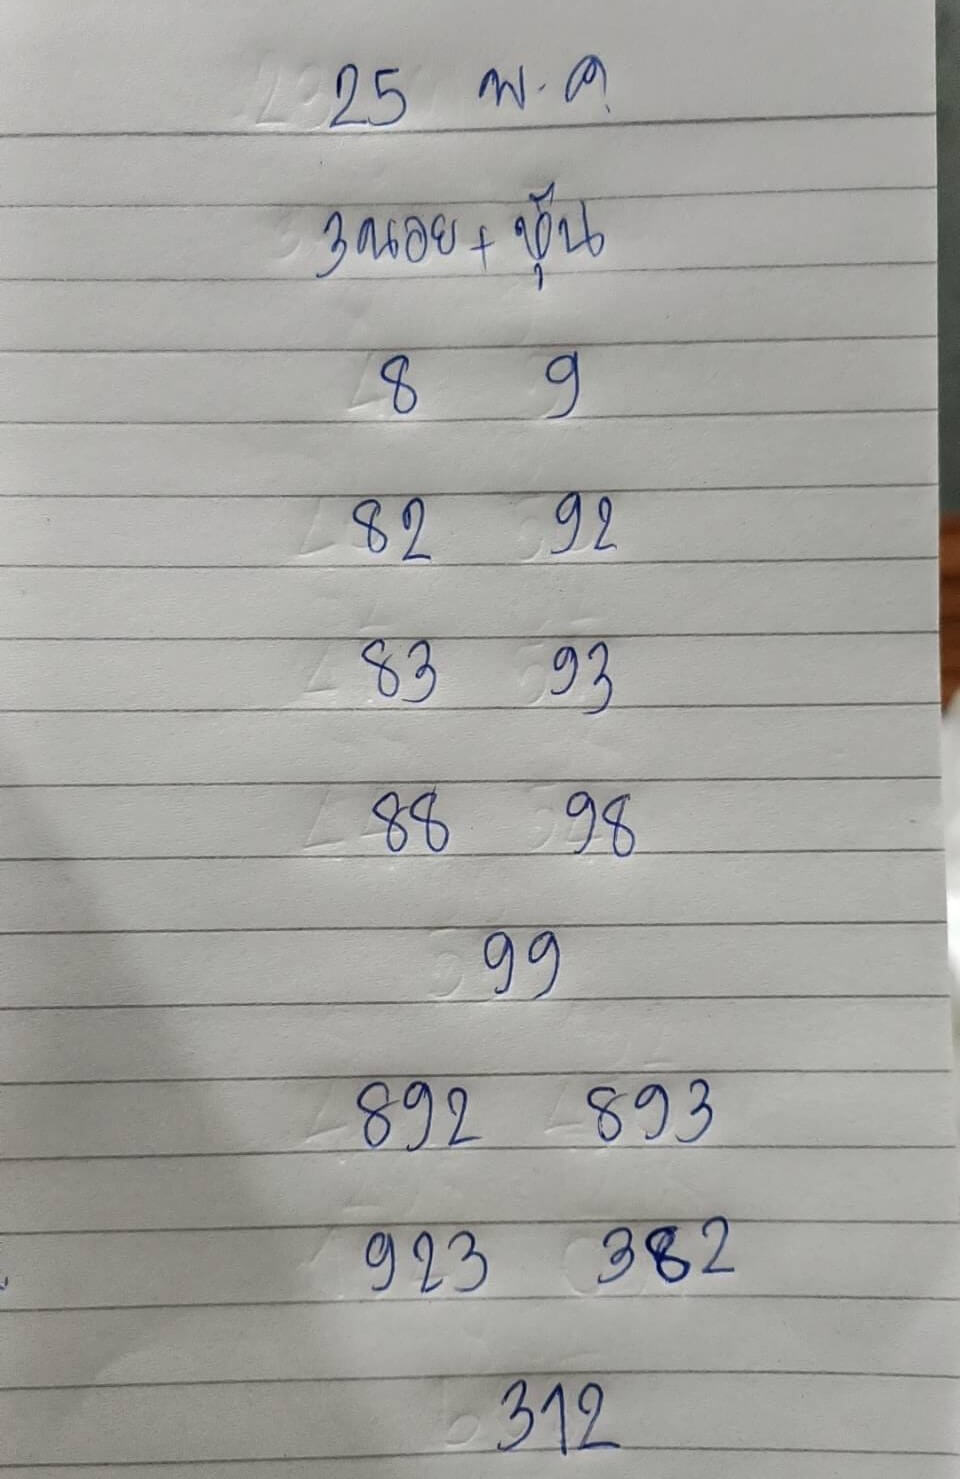 25 พ.ค.
3 นอย + หุ้น
8 9
82 92
83 93
88 98
99
892 893
923 382
312